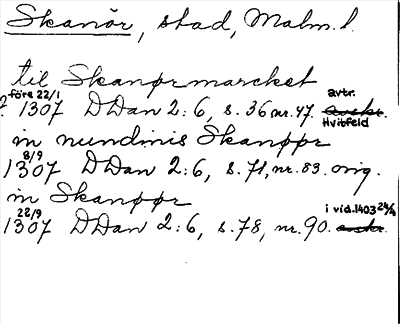 Skanör, stad, Malm. l.
til Skanørmarcket
? före 22/1 1307 DDan 2:6, s. 36 nr. 47. avskr. avtr. Hvitfeld
in nundinis Skanøør
8/9 1307 DDan 2:6, s. 71, nr. 83. orig.
in Skanøør
22/9 1307 DDan 2:6, s. 78, nr. 90. avskr. i vid. 1403 24/4